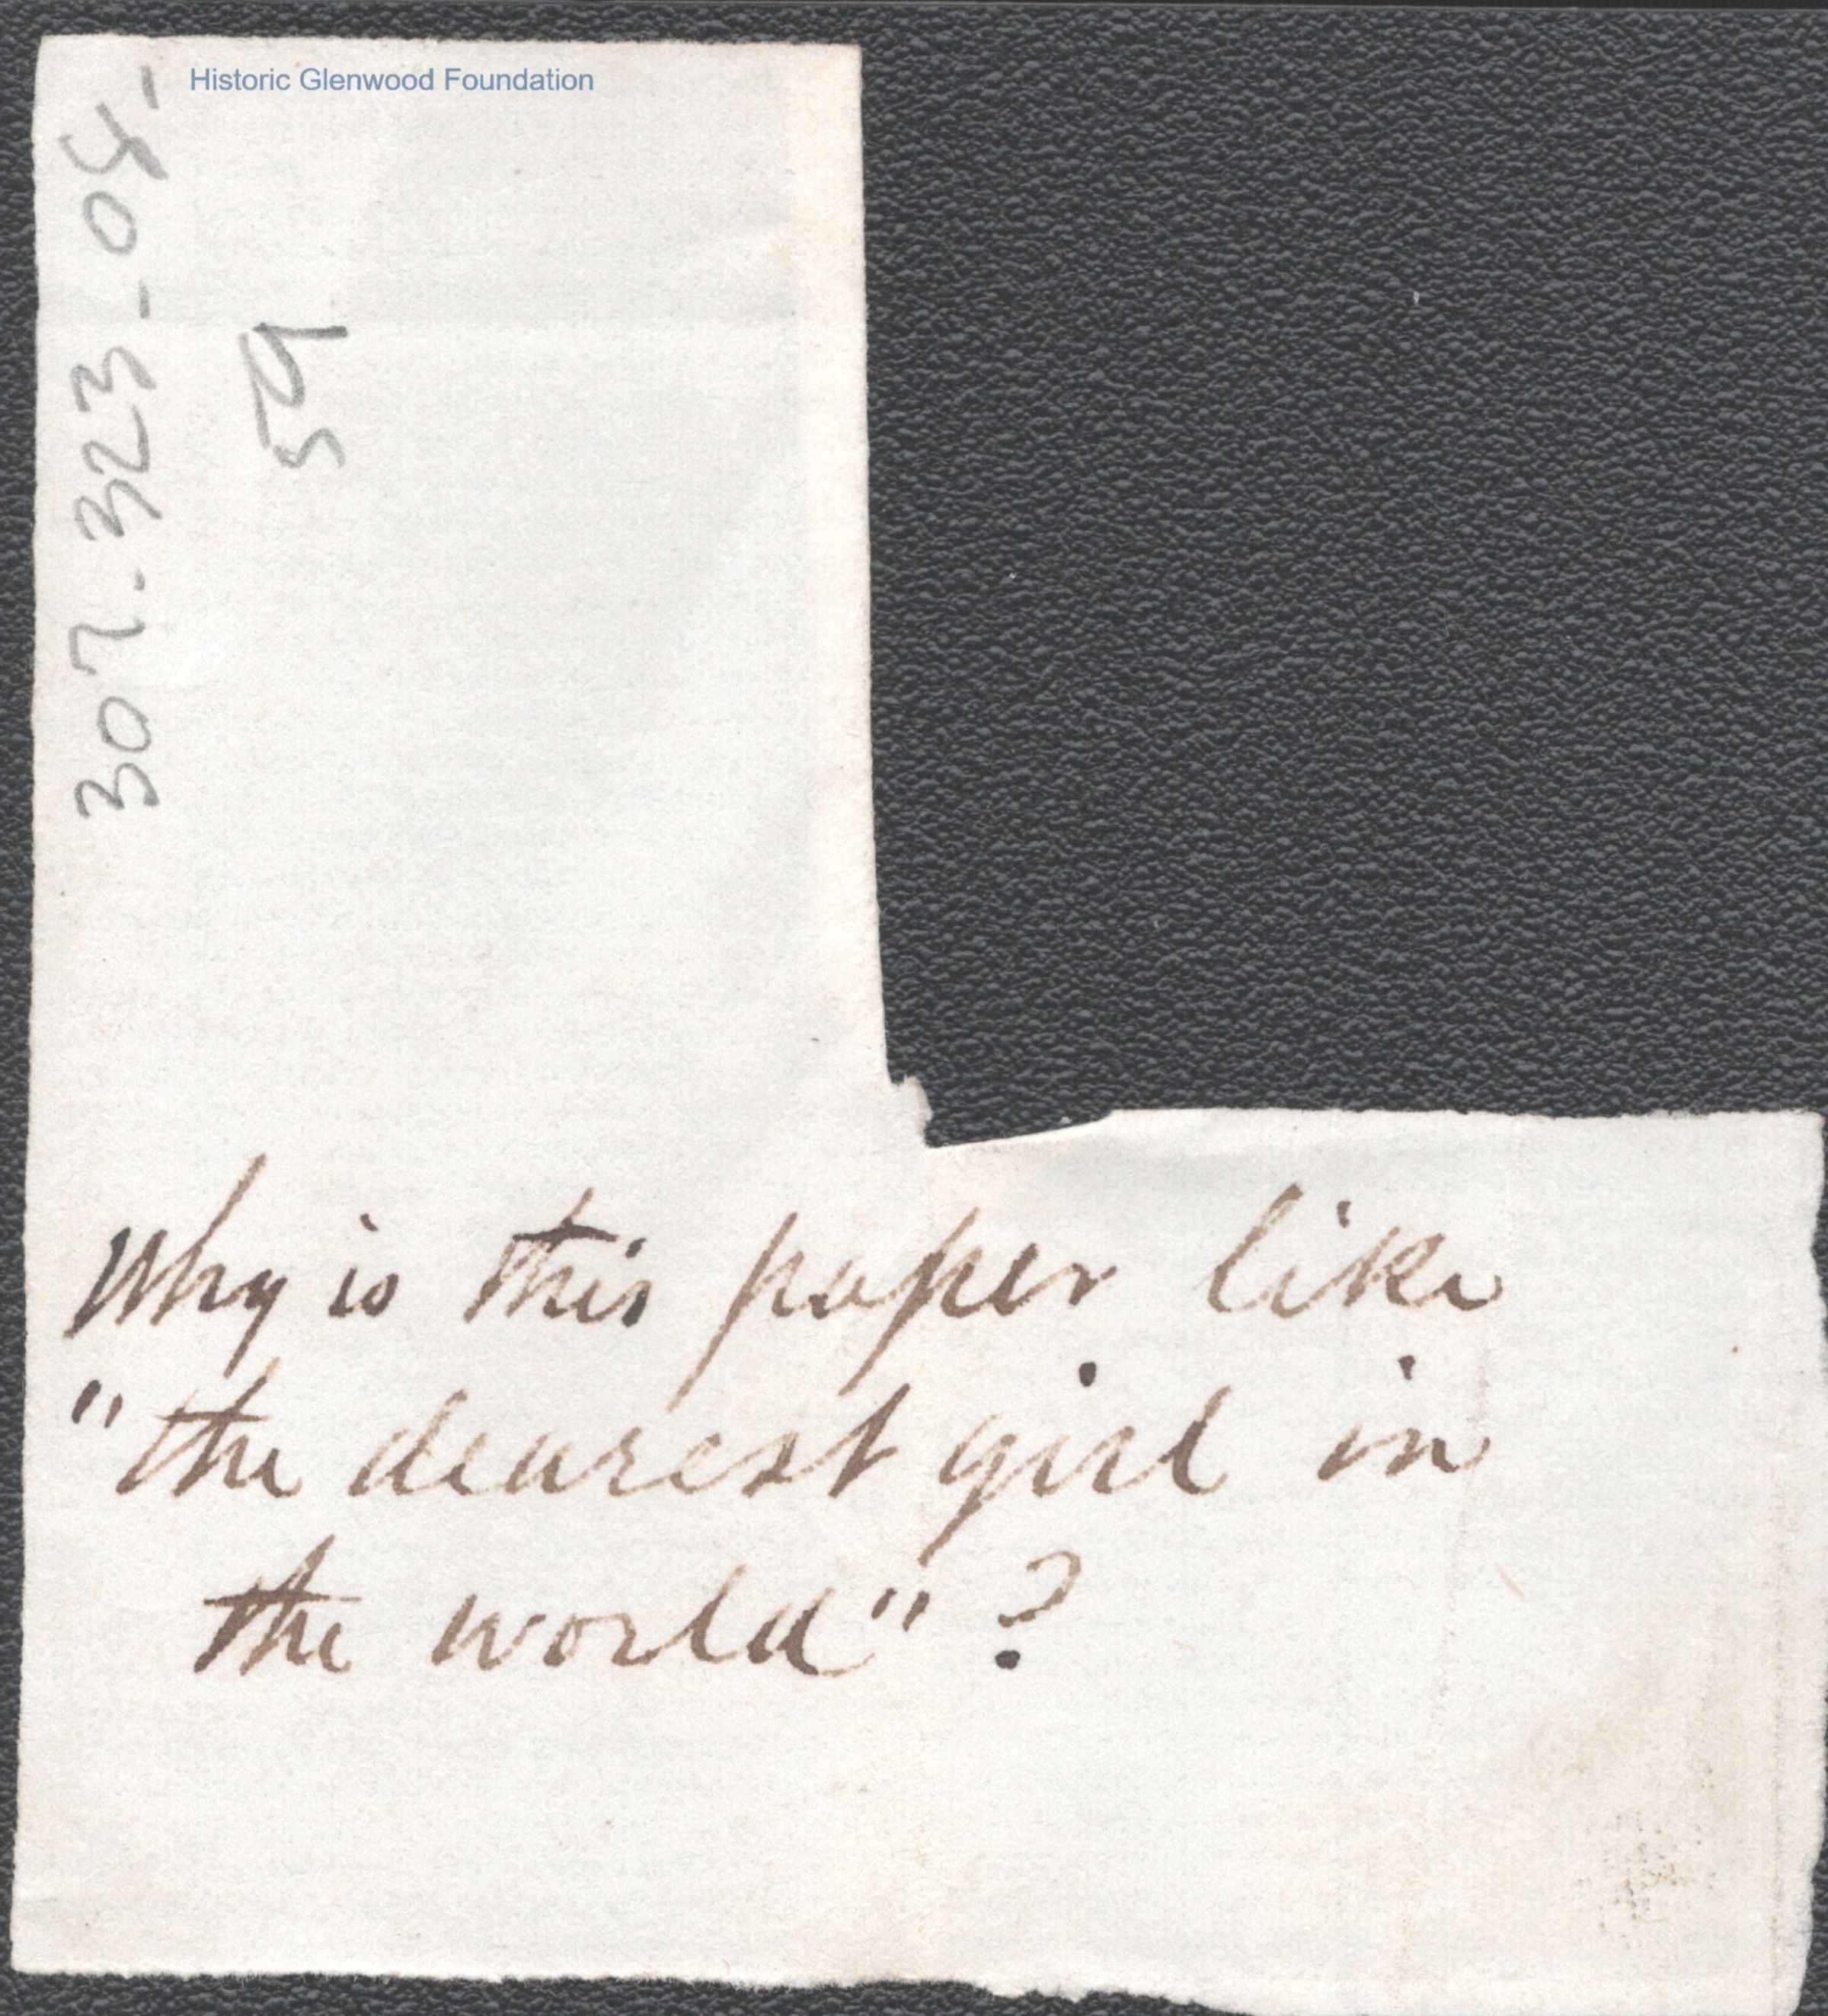 Historic Glenwood Foundation
307.323-04'
59
Why is this paper like
"the dearest girl in
the world"?